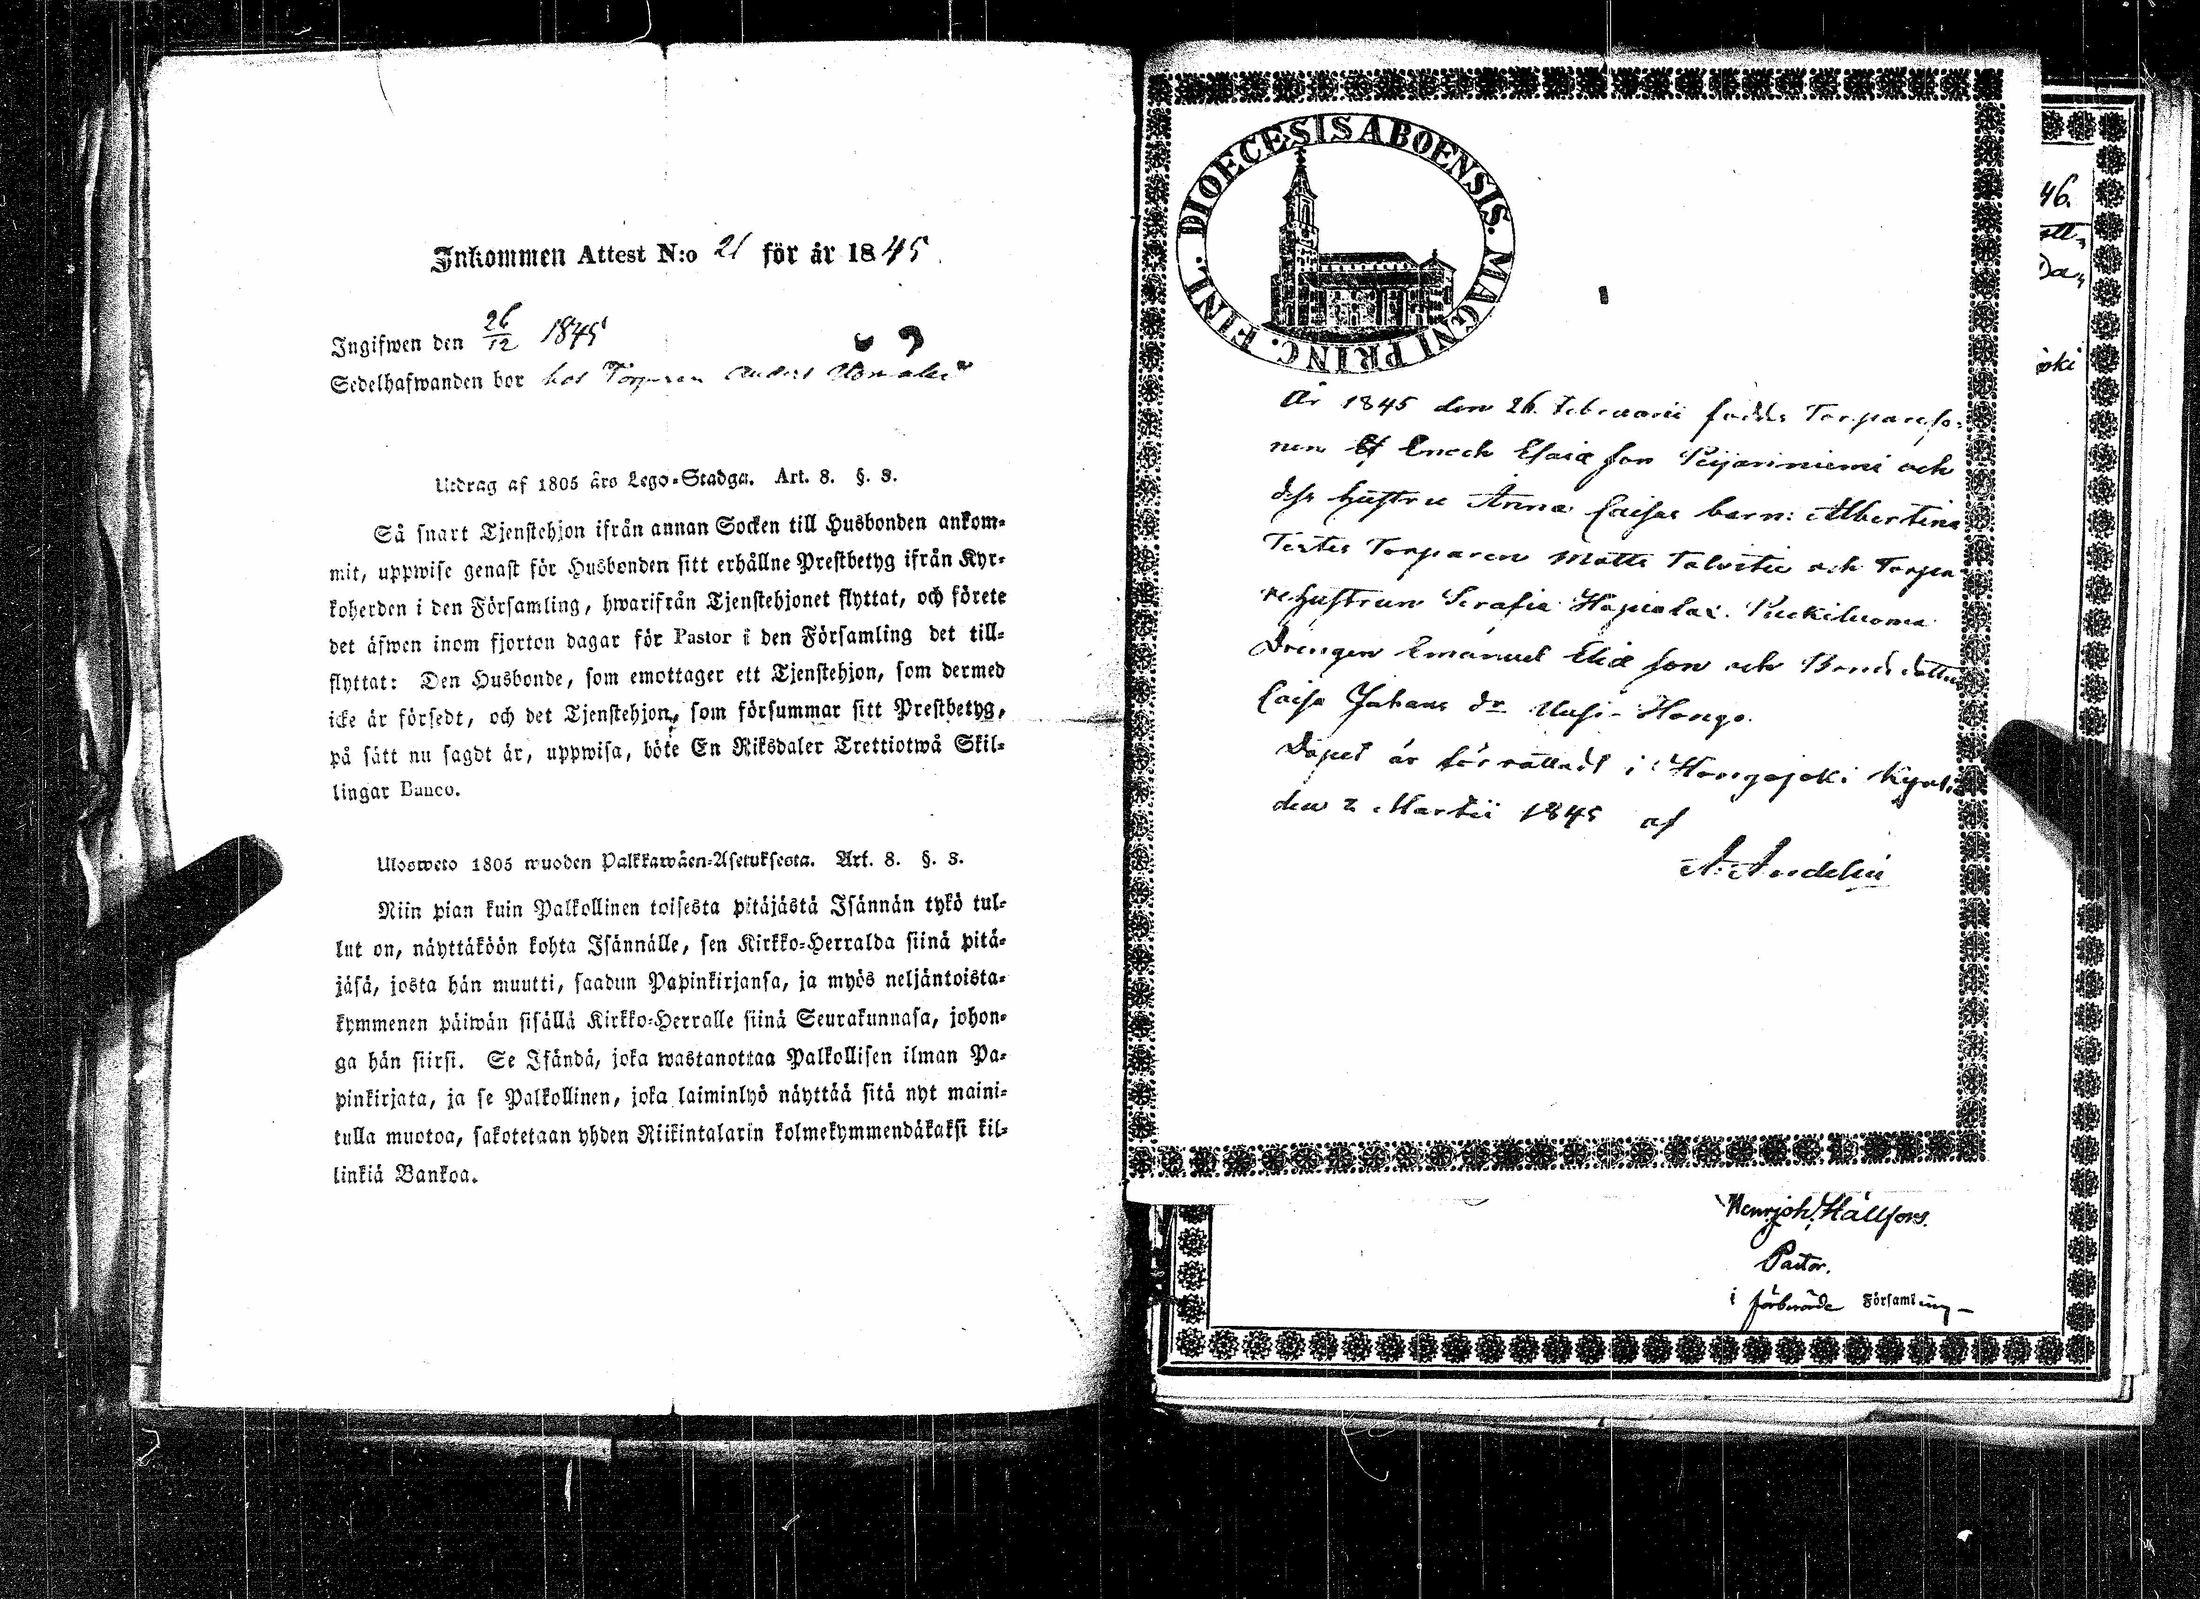 Inkommen Attest N:o 21 för år 1845.
Ingifwen den 26/12 1845
Sedelhafwanden bor hos Torparen Anders
Utdrag af 1805 års Lego-Stadga. Art. 8. §. 3.
Så snart Tjenstehjon ifrån annan Socken till Husbonden ankom-
mit, uppwise genast för Husbonden sitt erhållne Prestbetyg ifrån Kyr-
koherden i den Församling, hwarifrån Tjenstehjonet flyttat, och förete
det äfwen inom fjorton dagar för Pastor i den Församling det till-
flyttat: Den Husbonde, som emottager ett Tjenstehjon, som dermed
icke är försedt, och det Tjenstehjon, som försummar sitt Prestbetyg,
på sätt nu sagdt är, uppwisa, böte En Riksdaler Trettiotwå Skil-
lingar Banco.
Ulosweto 1805 wuoden Palkkawäen-Asetuksesta. Art. 8. §. 3.
Niin pian kuin Palkollinen toisesta pitäjästä Isännän tykö tul-
lut on, näyttäköön kohta Isännälle, sen Kirkko-Herralda siinä pitä-
jäsä, josta hän muutti, saadun Papinkirjansa, ja myös neljäntoista-
kymmenen päiwän sisällä Kirkko-Herralle siinä Seurakunnasa, johon-
ga hän siirsi. Se Isändä, joka wastanottaa Palkollisen ilman Pa-
pinkirjata, ja se Palkollinen, joka laiminlyö näyttää sitä nyt maini-
tulla muotoa, sakotetaan yhden Riikintalarin kolmekymmendäkaksi kil-
linkiä Bankoa.
DIOECESIS ABOENSIS. MAGNI PRINC. FINL.
År 1845 den 26. Februarii föddes Torpareso-
nen Enoch Esaiæ son Peijariniemi och
dess hustru Anna Caisas barn: Albertina
Testes Torparen Matts Talvitie och Torpa-
rehustrun Serafia Hapiala
Drengen Emanuel Eliæ son och Bondedottren
Caisa Johans dr Uusi-Hongo.
Dopet är förrättadt i Hongojoki Kyrka
den 2 Martii 1845 af
A. Andelin
46.
Henr. Joh. Hällfors.
Pastor.
i förberörde Församling